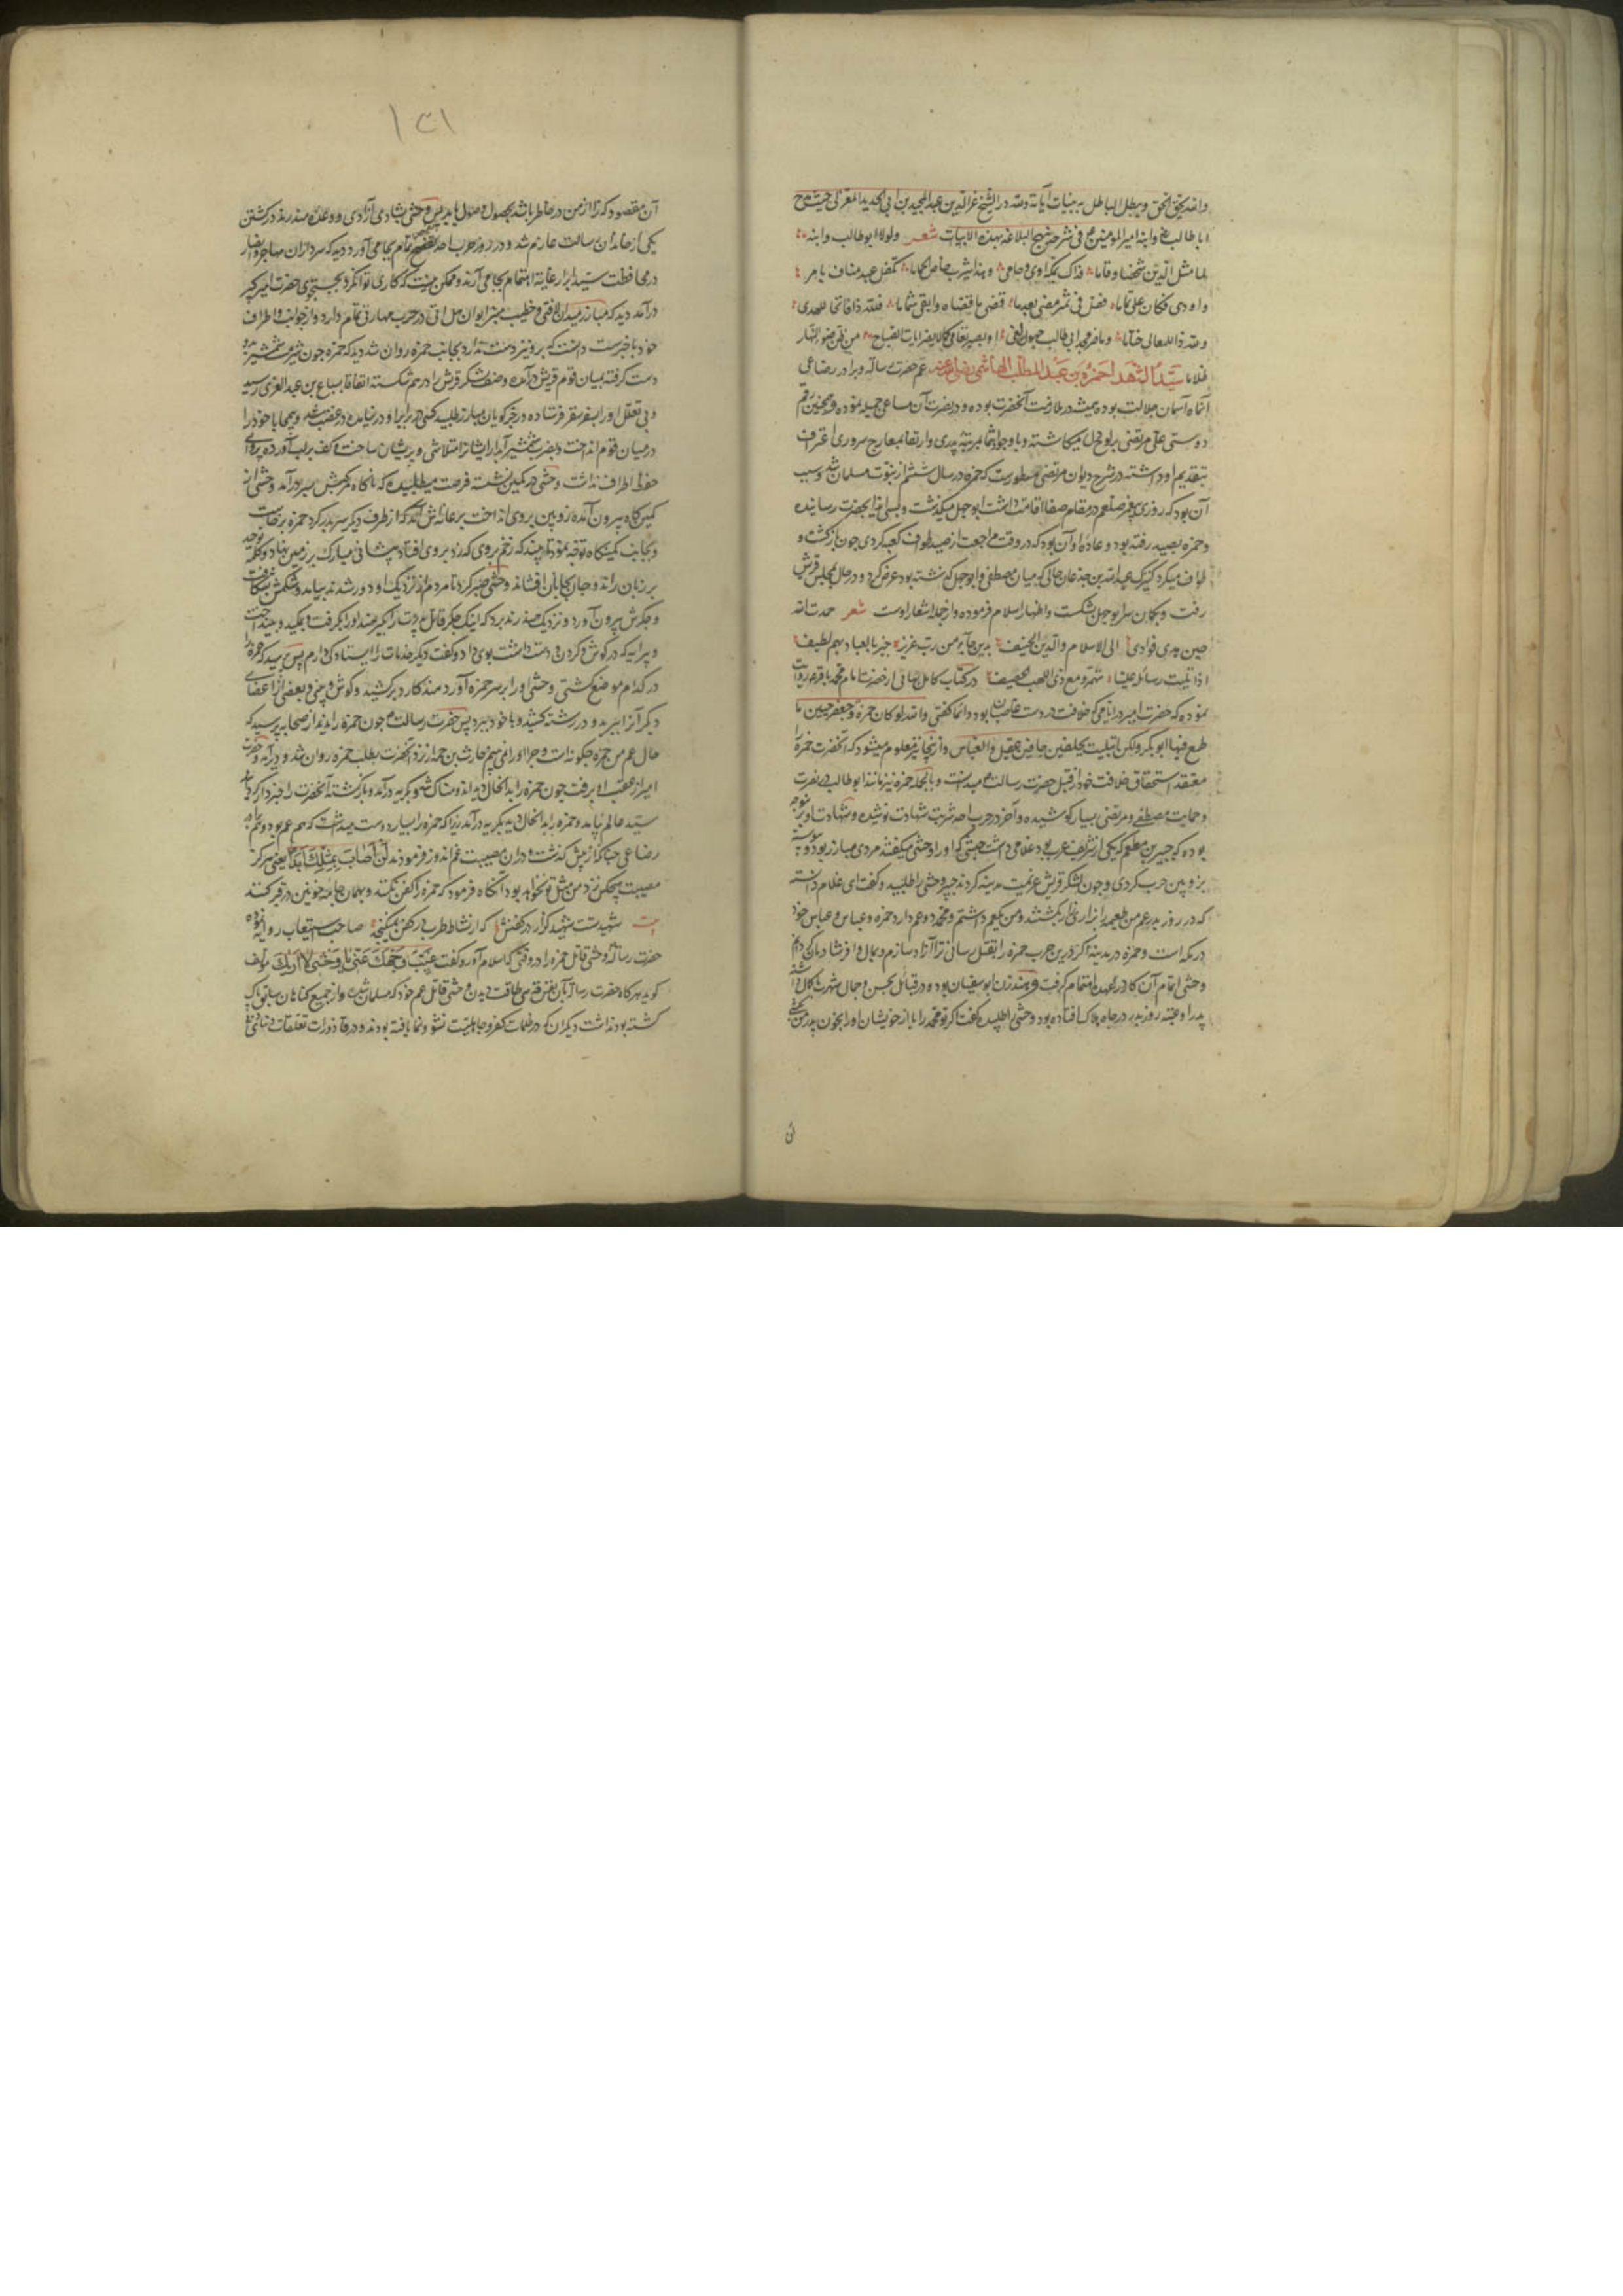 والله یحق الحق ویبطل الباطل به بینات آیاته ولله در الشیخ عز الدین عبد الحمید بن ابی الحدید المعتزلی حیث مدح
ابا طالب و ابنه امیر المومنین فی شرح نهج البلاغه بهذه الابیات شعر ولولا ابو طالب وابنه
لما مثل الدین شخصا وقاما فذاک بمکة اوی وحامی وهذا بیثرب الحماما تکفل عبد مناف بامر
واودی فکان علی تماما فقل فی ثبیر مضی بعد ما قضی ما قضاه وابقی شماما فلله ذا فاتحا للهدی
ولله ذا للمعالی ختاما وما ضر مجد ابی طالب جهول لغی او بصیر تعامی کما لا یضر ایات الصباح من ظن ضوء النهار
ظلاما سید الشهدا حمزه بن عبد المطلب الهاشمی رضی الله عنه عم حضرت رساله وبرادر رضاعی
آنماه آسمان جلالت بوده همیشه در ملازمت آنحضرت بوده و در نصرت آن مساعی جمیله نموده و همچنین رقم
دوستی علی مرتضی بر لوح دل میکاشته و با وجود انتما بمرتبه پدری و ارتقا بمعارج سروری اعتراف
بتقدیم او داشته در شرح دیوان مرتضی مسطورست که حمزه در سال ششم از نبوت مسلمان شد و سبب
آن بود که روزی پیغمبر صلعم در مقام صفا اقامت داشت ابو جهل میگذشت و بسی ایذا بحضرت رسانیده
وحمزه بصید رفته بود و عاده او آن بود که در وقت مراجعت از صید طواف کعبه کردی چون بازگشت و
طواف میکرد کنیزک عبد الله بن جدعان حالی که میان مصطفی و ابو جهل گذشته بود عرض کرد و در حال بمجلس قریش
رفت و بکمان سر ابو جهل شکست و اظهار اسلام فرموده و از جمله اشعار اوست شعر حمدت الله
حین هدی فوادی الی الاسلام والدین الحنیف بدین جاء من رب عزیز خبیر بالعباد بهم لطیف
اذا تلیت رسائله علینا در کتاب کامل بهائی از حضرت امام محمد باقر ع روایت
نموده که حضرت امیر در ایامی که خلافت در دست غاصبان بود دائما کفتی والله لو کان حمزه وجعفر حیین ما
طمع فیها ابو بکر ولکن ابتلیت بجلفین جافین عقیل والعباس و ازینجا نیز معلوم میشود که آنحضرت حمزه را
معتقد استحقاق خلافت خود از قبل حضرت رسالت میدانست و بالجمله حمزه نیز مانند ابو طالب در نصرت
و حمایت مصطفی و مرتضی بسیار کوشیده و آخر در حرب احد شربت شهادت نوشیده و شهادت او بر
بوده که جبیر بن مطعم که یکی از شریف عرب بود غلامی داشت حبشی که او را وحشی میکفتند مردی مبارز بود و پیوسته
بزوبین حرب کردی و چون لشکر قریش عزیمت مدینه کردند جبیر وحشی را طلبید و کفت ای غلام دانسته
که در روز بدر عم من طعیمه را بزاری زار بکشتند و من یک عم داشتم و محمد دو عم دارد حمزه و عباس و عباس خود
در مکه است و حمزه در مدینه اکر درین حرب حمزه را بقتل رسانی ترا آزاد سازم و بمال وافر شادمان کردانم
وحشی اتمام آن کار در عهده اهتمام کرفت وهند زن ابو سفیان بوده و در قبائل بحسن و جمال شهرت کمال داشته
پدر او عتبه روز بدر در چاه هلاک افتاده بود وحشی را طلبیده کفت اکر تو محمد را یا از خویشان او را بخون پدر من بکشی
ی
۱۳۱
آن مقصود که ترا از من در خاطر باشد بحصول وصول یابد پس وحشی بشادی آزادی و وعده هند رند در کشتن
یکی از خاندان رسالت عازم شد و در روز حرب احد تفحص تمام بجا می آورد دید که سرداران مهاجر و انصار
در محافظت سید ابرار غایة اهتمام بجا می آرند و ممکن نیست که کاری تواند کرد بجستجوی حضرت امیر کبیر
درآمد دید که مبارز میدان لافتی و خطیب منبر ایوان هل اتی در حرب مهارتی تمام دارد و از جوانب و اطراف
خود باخبرست دانست که برو نیز دست ندارد بجانب حمزه روان شد دید که حمزه چون شیر مست شمشیر بدو
دست کرفته بمیان قوم قریش درآمده وصف لشکر قریش را درهم شکسته اتفاقا بسباع بن عبد العزی رسید
و بی تعلل او را بسفر سقر فرستاده و رجز کویان مبارز طلبید کسی در برابر او در نیامد در غضب شد و بیمحابا خود را
در میان قوم انداخت و بضرب شمشیر آبدار ایشانرا متلاشی و پریشان ساخت و کف بر لب آورده پروای
حفظ اطراف نداشت وحشی در کمین نشسته فرصت میطلبید که ناکاه مرکبش بسر درآمد وحشی از
کمین کاه بیرون آمده زوبین بروی انداخت بر عانه اش آمد که از طرف دیکر سر بدر کرد حمزه برخاست
و بجانب کمینکاه توجه نمود تا هر چند که زخم بروی کارد بر وی افتاد پیشانی مبارک بر زمین نهاد و کلمه توحید
بر زبان راند و جان بجانان افشاند وحشی صبر کرد تا مردم از نزدیک او دور شدند بیامد و شکمش بشکافت
و جکرش بیرون آورد و نزدیک هند رند برد که اینک جکر قاتل پدرت را بکیر هند او را بکرفت و بمکید و بینداخت
و پیرایه که در کوش و کردن و دست داشت بوی داد و کفت دیکر خدمات را ایستادکی دارم پس پرسید که حمزه را
در کدام موضع کشتی وحشی او را بر سر حمزه آورد هند کارد برکشید و کوش و بینی و بعضی از اعضای
دیکر آنرا ببرید و در رشته کشید و با خود ببرد پس حضرت رسالت چون حمزه را ندید از صحابه پرسید که
حال عم من حمزه چکونه است و چرا او را نمی بینم حارث بن از نزد آنحضرت بطلب حمزه روان شد و دیر آمد و حضرت
امیر از عقب او برفت چون حمزه را بدانحال دید اندوهناک شد و بکریه درآمد و بازکشته آنحضرت را خبردار کردانید
سید عالم بیامد و حمزه را بدانحال دید بکریه درآمد زیرا که حمزه را بسیار دوست میداشت که هم عم بود و هم برادر
رضاعی چنانکه از پیش کذشت و دران مصیبت غم اندوز فرمودند لن اصاب بمثلک ابدا یعنی هرکز
مصیبت هیچکس نزد من مثل تو نخواهد بود آنکاه فرمود که حمزه را کفن نکنند و بهمان جامه خونین در قبر کنند
بیت شهیدست شهید کزار در کفنش که از نشاط طرب در کفن نمیکنجد صاحب استیعاب روایت نموده
حضرت رساله وحشی قاتل حمزه را در وقتی که اسلام آورد کفت غیب وجهک عنی یا وحشی لا اریک مولف
کوید هرکاه حضرت رسالت بآن نفس قدسی طاقت دیدن وحشی قاتل عم خود که مسلمان شد و از جمیع کناهان سابق پاک
کشته بود نداشت دیکران که در ظلمات کفر و جاهلیت نشو و نما یافته بودند و در قاذورات تعلقات دنیای دنی